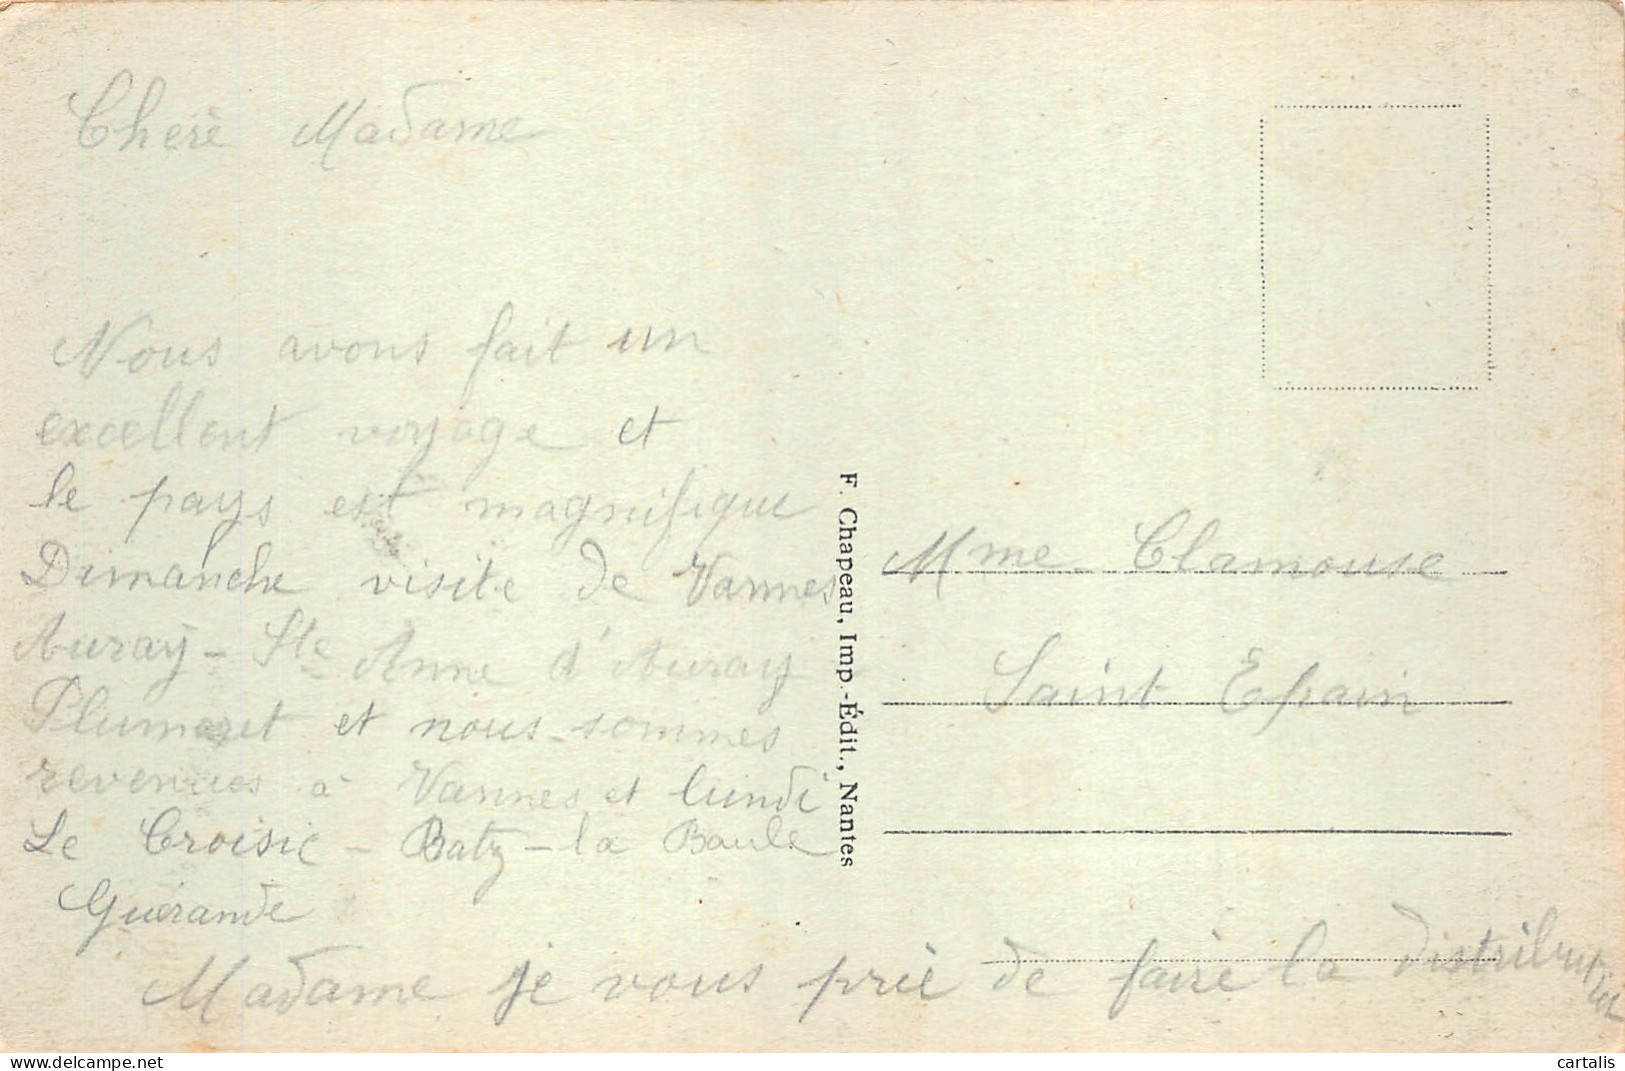 Cherè Madame
Nous avons fait un
excellent voyage et
le pays est magnifique
Dimanche visite de Vannes
Auray - Ste Anne d'Auray
Plumeret et nous-sommes
revenues à Vannes et lundi
Le Croisic - Batz - la Baule
Guérande
Madame je vous prie de faire la distribution
F. Chapeau, Imp.-Édit., Nantes
Mme Clamouse
Saint Epain
cartalis